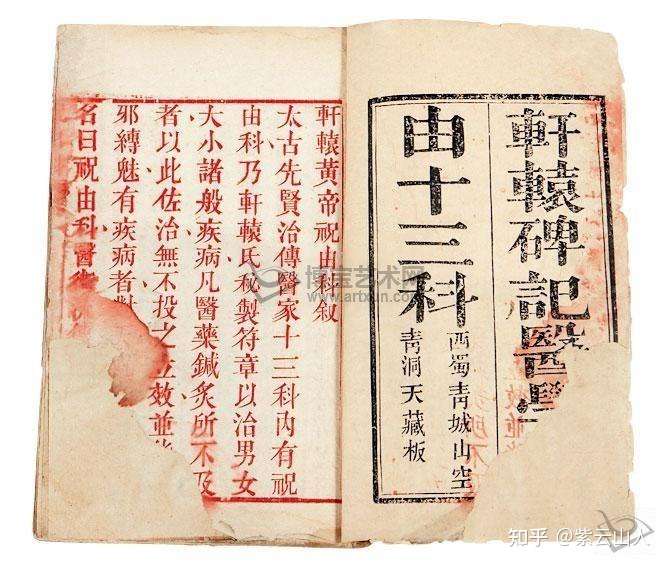 軒轅碑記醫學
由十三科
西蜀青城山空
青洞天藏板
軒轅黃帝祝由科敘
太古先賢治傳醫家十三科內有祝
由科乃軒轅氏秘製符章以治男女
大小諸般疾病凡醫藥鍼灸所不及
者以此佐治無不投之立效並
邪縛魅有疾病者對
名曰祝由科醫
博宝艺术网
www.artxun.com
知乎 @紫云山人